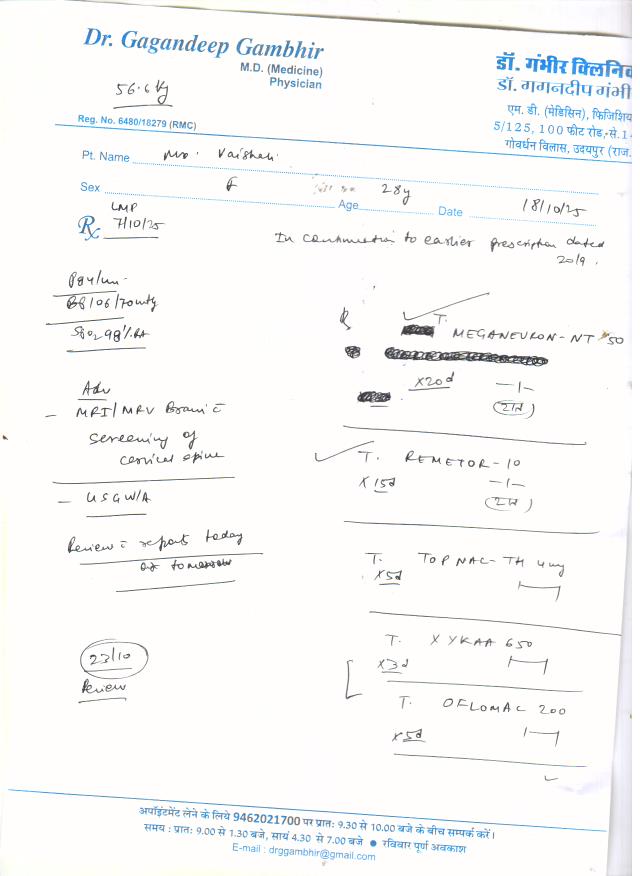 Dr. Gagandeep Gambhir
M.D. (Medicine)
Physician
56.6 kg
Reg. No. 6480/18279 (RMC)
डॉ. गंभीर क्लिनिक
डॉ. गगनदीप गंभी
एम. डी. (मेडिसिन), फिजिशिय
5/125, 100 फीट रोड, से.1-
गोवर्धन विलास, उदयपुर (राज.
Pt. Name Mrs. Vaishali
Sex F Age 28y Date 18/10/25
LMP
Rx 7/10/25
In continuation to earlier prescription dated
20/9.
P84/min
BP106/70mmHg
SpO2 98% RA
T. MEGANEURON-NT 50
x20d —1—
Adv
- MRI/MRV Brain c̄
screening of
cervical spine
T. REMETOR-10
x15d —1—
- USG W/A
Review c̄ reports today
or tomorrow
T. TOPNAC-TH 4mg
x5d
T. XYKAA 650
x3d
23/10
Review
T. OFLOMAC 200
x5d
अपॉइंटमेंट लेने के लिये 9462021700 पर प्रातः 9.30 से 10.00 बजे के बीच सम्पर्क करें।
समय : प्रातः 9.00 से 1.30 बजे, सायं 4.30 से 7.00 बजे ● रविवार पूर्ण अवकाश
E-mail : drggambhir@gmail.com